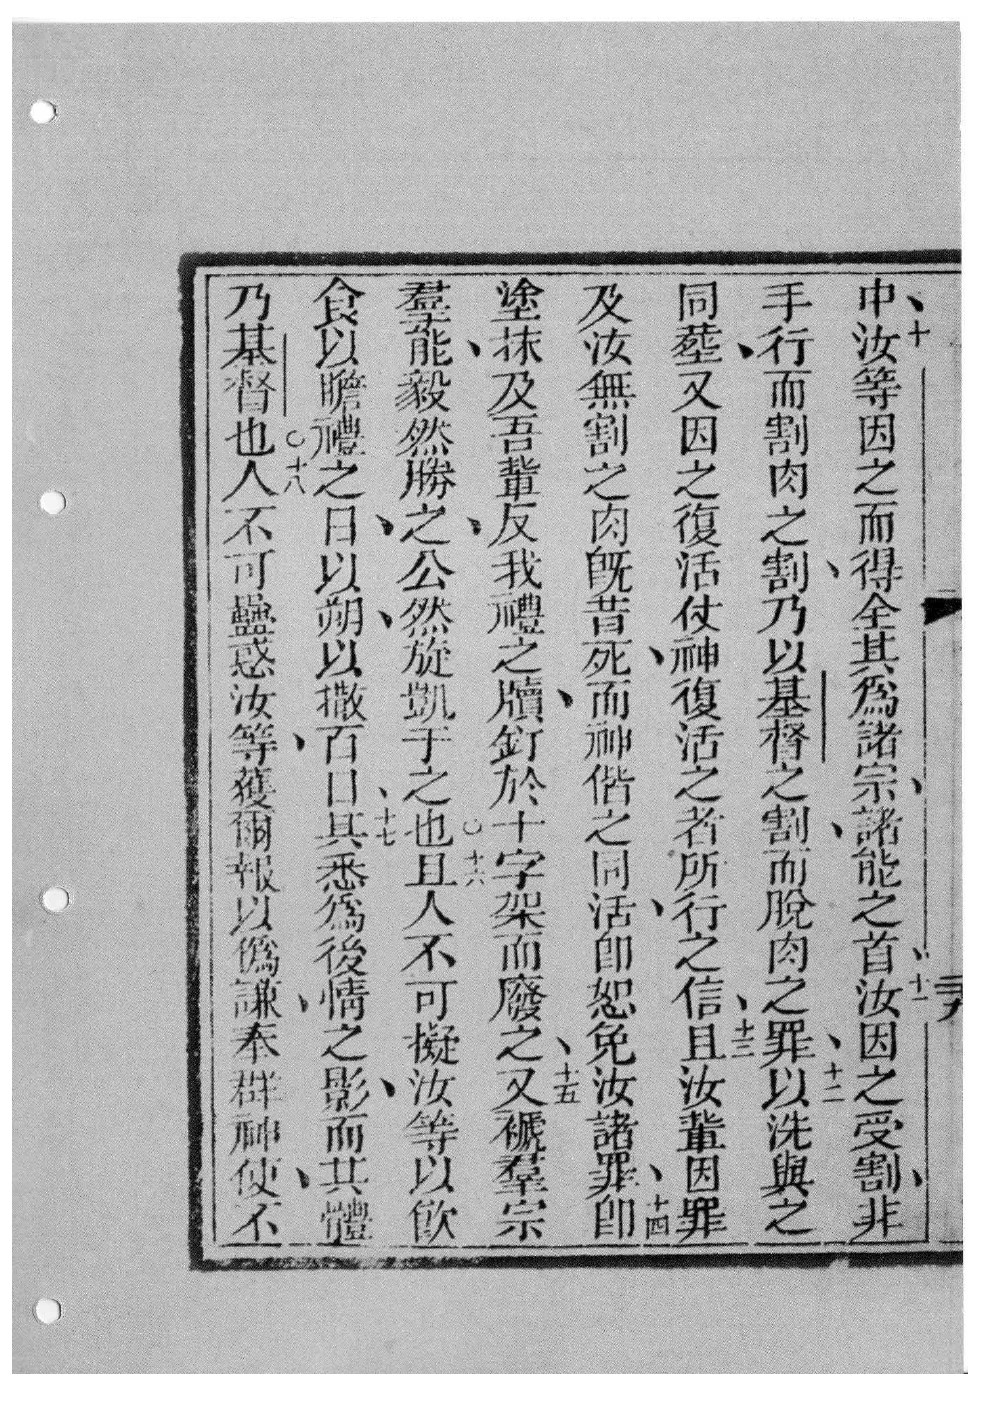 中汝等因之而得全其為諸宗諸能之首汝因之受割非
手行而割肉之割乃以基督之割而脫肉之罪以洗與之
同塟又因之復活仗神復活之者所行之信且汝輩因罪
及汝無割之肉旣昔死而神偕之同活即恕免汝諸罪即
塗抹及吾輩反我禮之牘釘於十字架而廢之又褫羣宗
羣能毅然勝之公然旋凱于之也且人不可擬汝等以飲
食以瞻禮之日以朔以撒百日其悉為後情之影而其體
乃基督也人不可蠱惑汝等獲爾報以偽謙奉群神使不
十
十一
十二
十三
十四
十五
十六
十七
十八